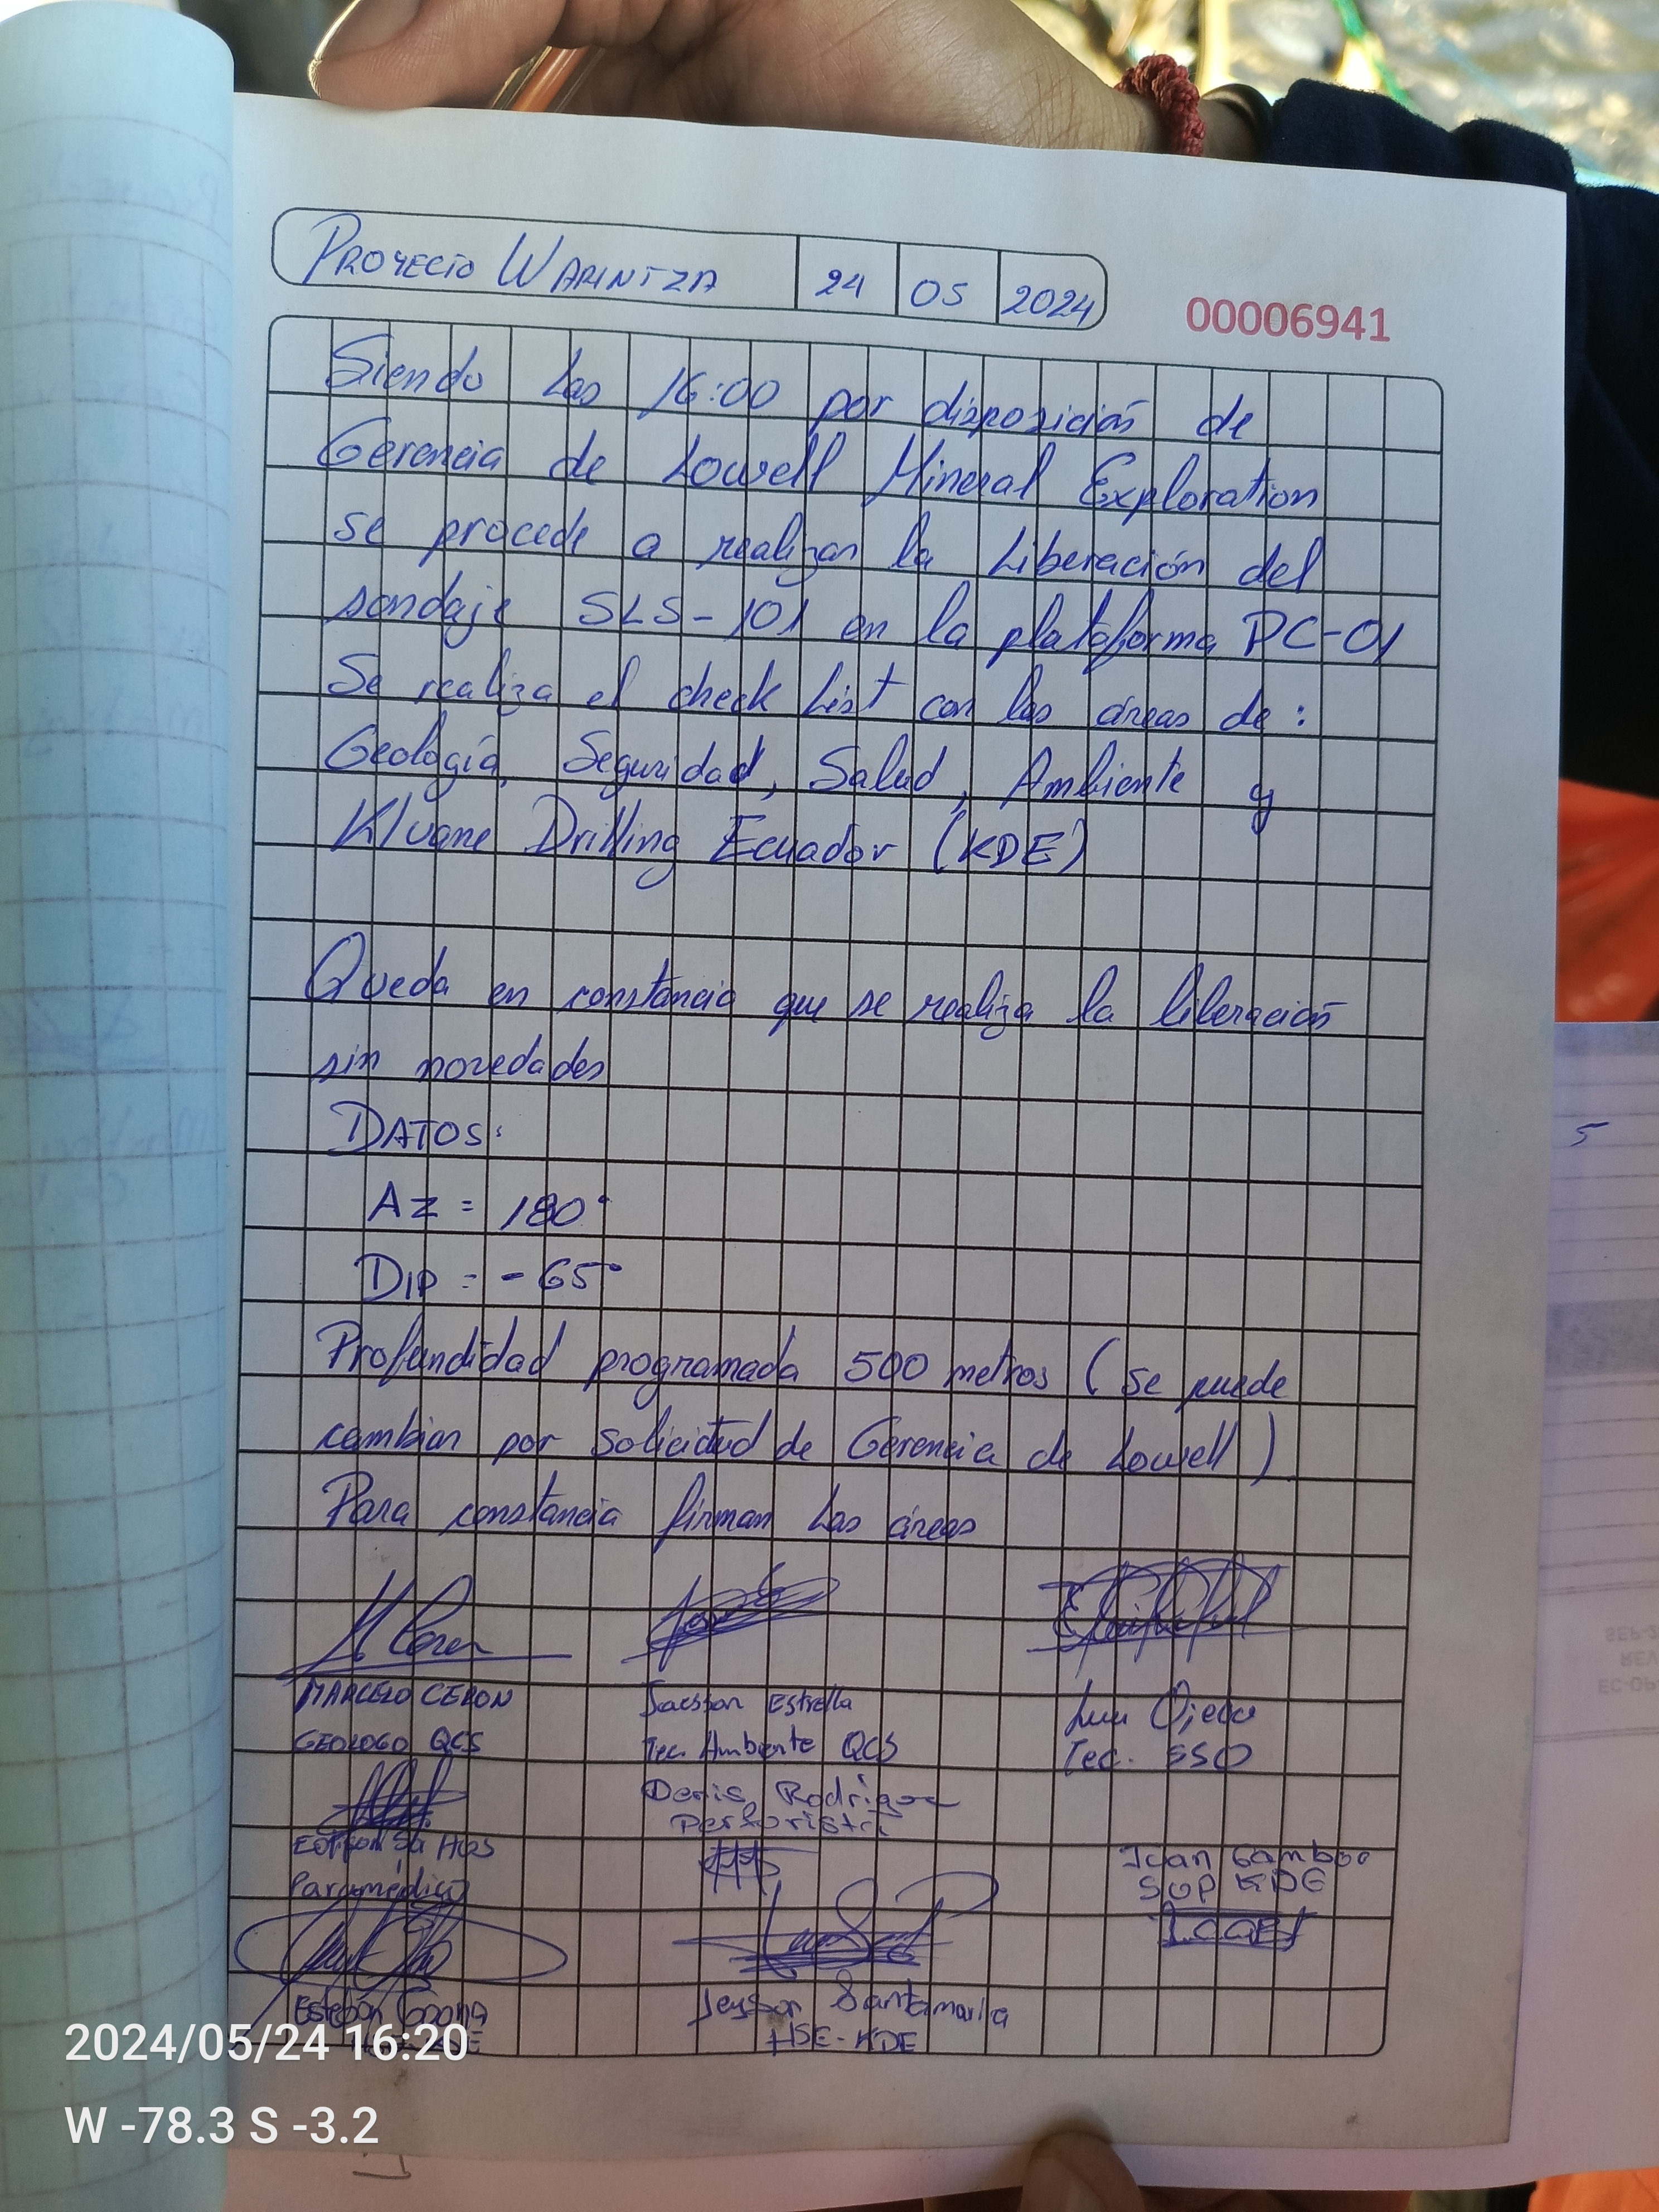 PROYECTO WARINTZA 24 05 2024
00006941
Siendo las 16:00 por disposición de
Gerencia de Lowell Mineral Exploration
se procede a realizar la Liberación del
sondaje SLS-101 en la plataforma PC-01
Se realiza el check List con las áreas de:
Geología, Seguridad, Salud, Ambiente y
Kluane Drilling Ecuador (KDE)
Queda en constancia que se realiza la liberación
sin novedades
DATOS:
Az = 180°
Dip = -65°
Profundidad programada 500 metros (se puede
cambiar por solicitud de Gerencia de Lowell)
Para constancia firman las áreas
MARCELO CERON
GEOLOGO QCS
Jacsson Estrella
Tec. Ambiente QCS
Luis Ojeda
Tec. SSO
Denis Rodrigue
Perforista
Paramédico
Juan Gamboa
SUP KDE
Esteban
Jeyson Santamaria
HSE-KDE
5
2024/05/24 16:20
W -78.3 S -3.2